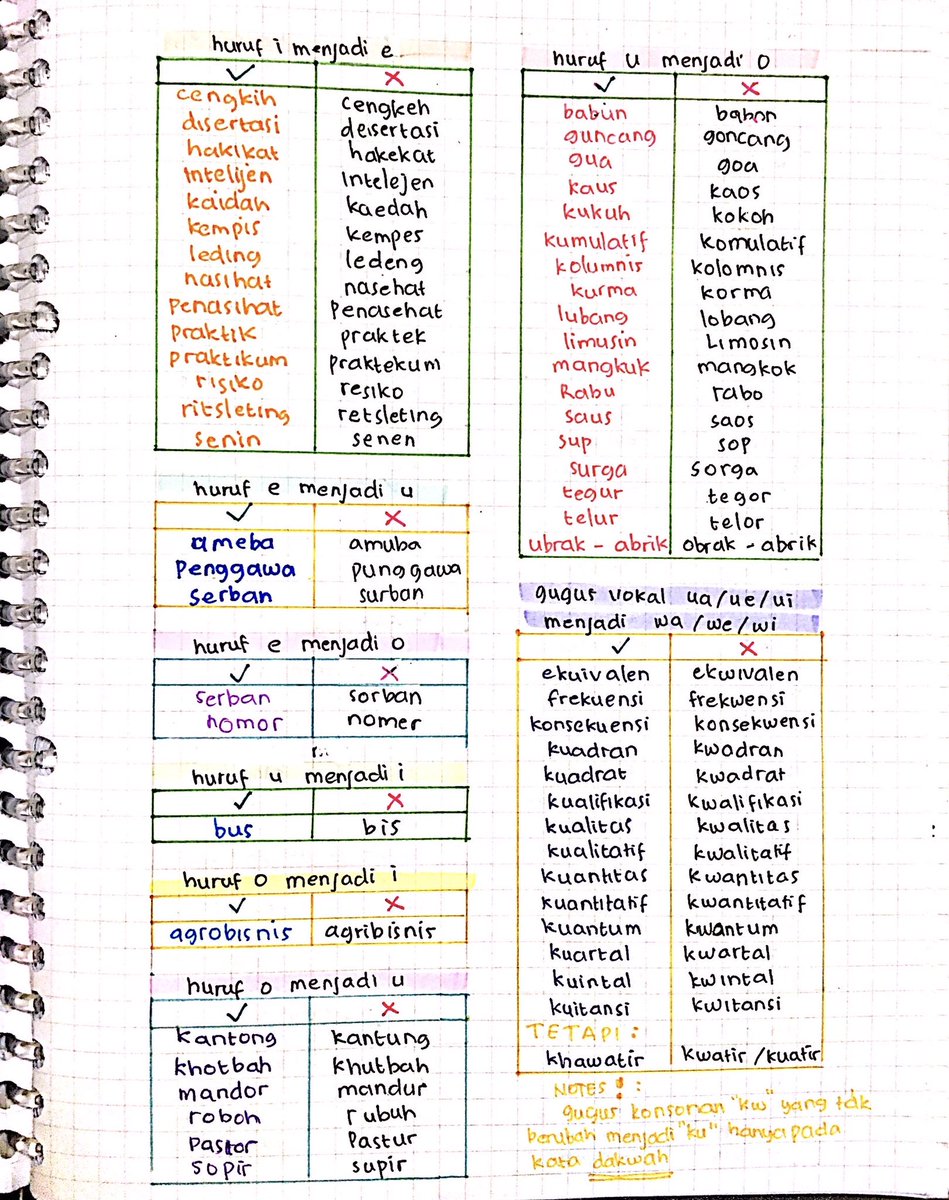 huruf i menjadi e
✓ ✗
cengkih cengkeh
disertasi deisertasi
hakikat hakekat
intelijen intelejen
kaidah kaedah
kempis kempes
leding ledeng
nasihat nasehat
Penasihat Penasehat
praktik praktek
praktikum praktekum
risiko resiko
ritsleting retsleting
senin senen
huruf e menjadi u
✓ ✗
ameba amuba
Penggawa punggawa
serban surban
huruf e menjadi o
✓ ✗
serban sorban
nomor nomer
huruf u menjadi i
✓ ✗
bus bis
huruf o menjadi i
✓ ✗
agrobisnis agribisnis
huruf o menjadi u
✓ ✗
kantong kantung
khotbah khutbah
mandor mandur
roboh rubuh
pastor Pastur
sopir supir
huruf u menjadi o
✓ ✗
babun babon
guncang goncang
gua goa
kaus kaos
kukuh kokoh
kumulatif komulatif
kolumnis kolomnis
kurma korma
lubang lobang
limusin Limosin
mangkuk mangkok
Rabu rabo
saus saos
sup sop
surga sorga
tegur tegor
telur telor
ubrak - abrik obrak - abrik
gugus vokal ua/ue/ui
menjadi wa/we/wi
✓ ✗
ekuivalen ekwivalen
frekuensi frekwensi
konsekuensi konsekwensi
kuadran kwadran
kuadrat kwadrat
kualifikasi kwalifikasi
kualitas kwalitas
kualitatif kwalitatif
kuantitas kwantitas
kuantitatif kwantitatif
kuantum kwantum
kuartal kwartal
kuintal kwintal
kuitansi kwitansi
TETAPI :
khawatir kwatir/kuatir
NOTES ! :
gugus konsonan "kw" yang tdk
berubah menjadi "ku" hanya pada
kata dakwah